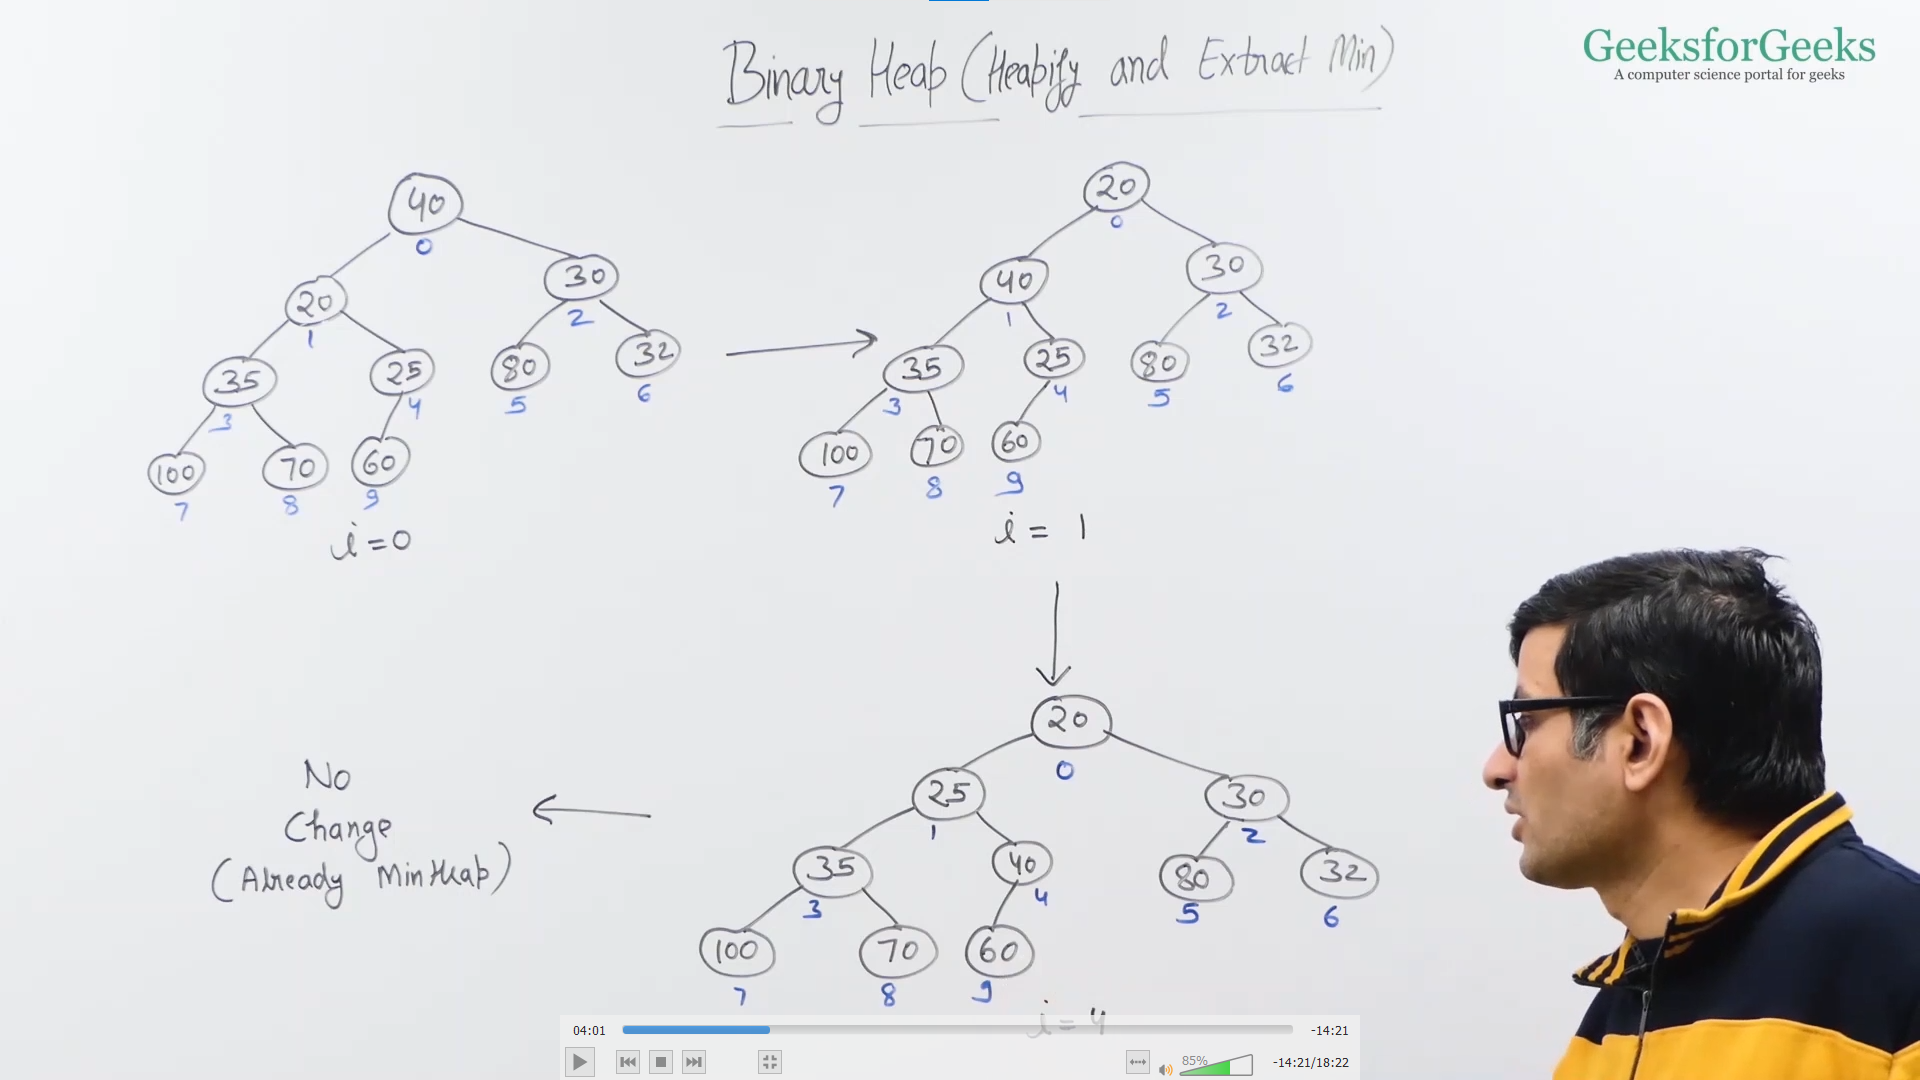 Binary Heap (Heapify and Extract Min)
GeeksforGeeks
A computer science portal for geeks
40
0
20
1
30
2
35
3
25
4
80
5
32
6
100
7
70
8
60
9
i=0
20
0
40
1
30
2
35
3
25
4
80
5
32
6
100
7
70
8
60
9
i = 1
20
0
25
1
30
2
35
3
40
4
80
5
32
6
100
7
70
8
60
9
i = 4
No
Change
(Already MinHeap)
04:01
-14:21
85%
-14:21/18:22